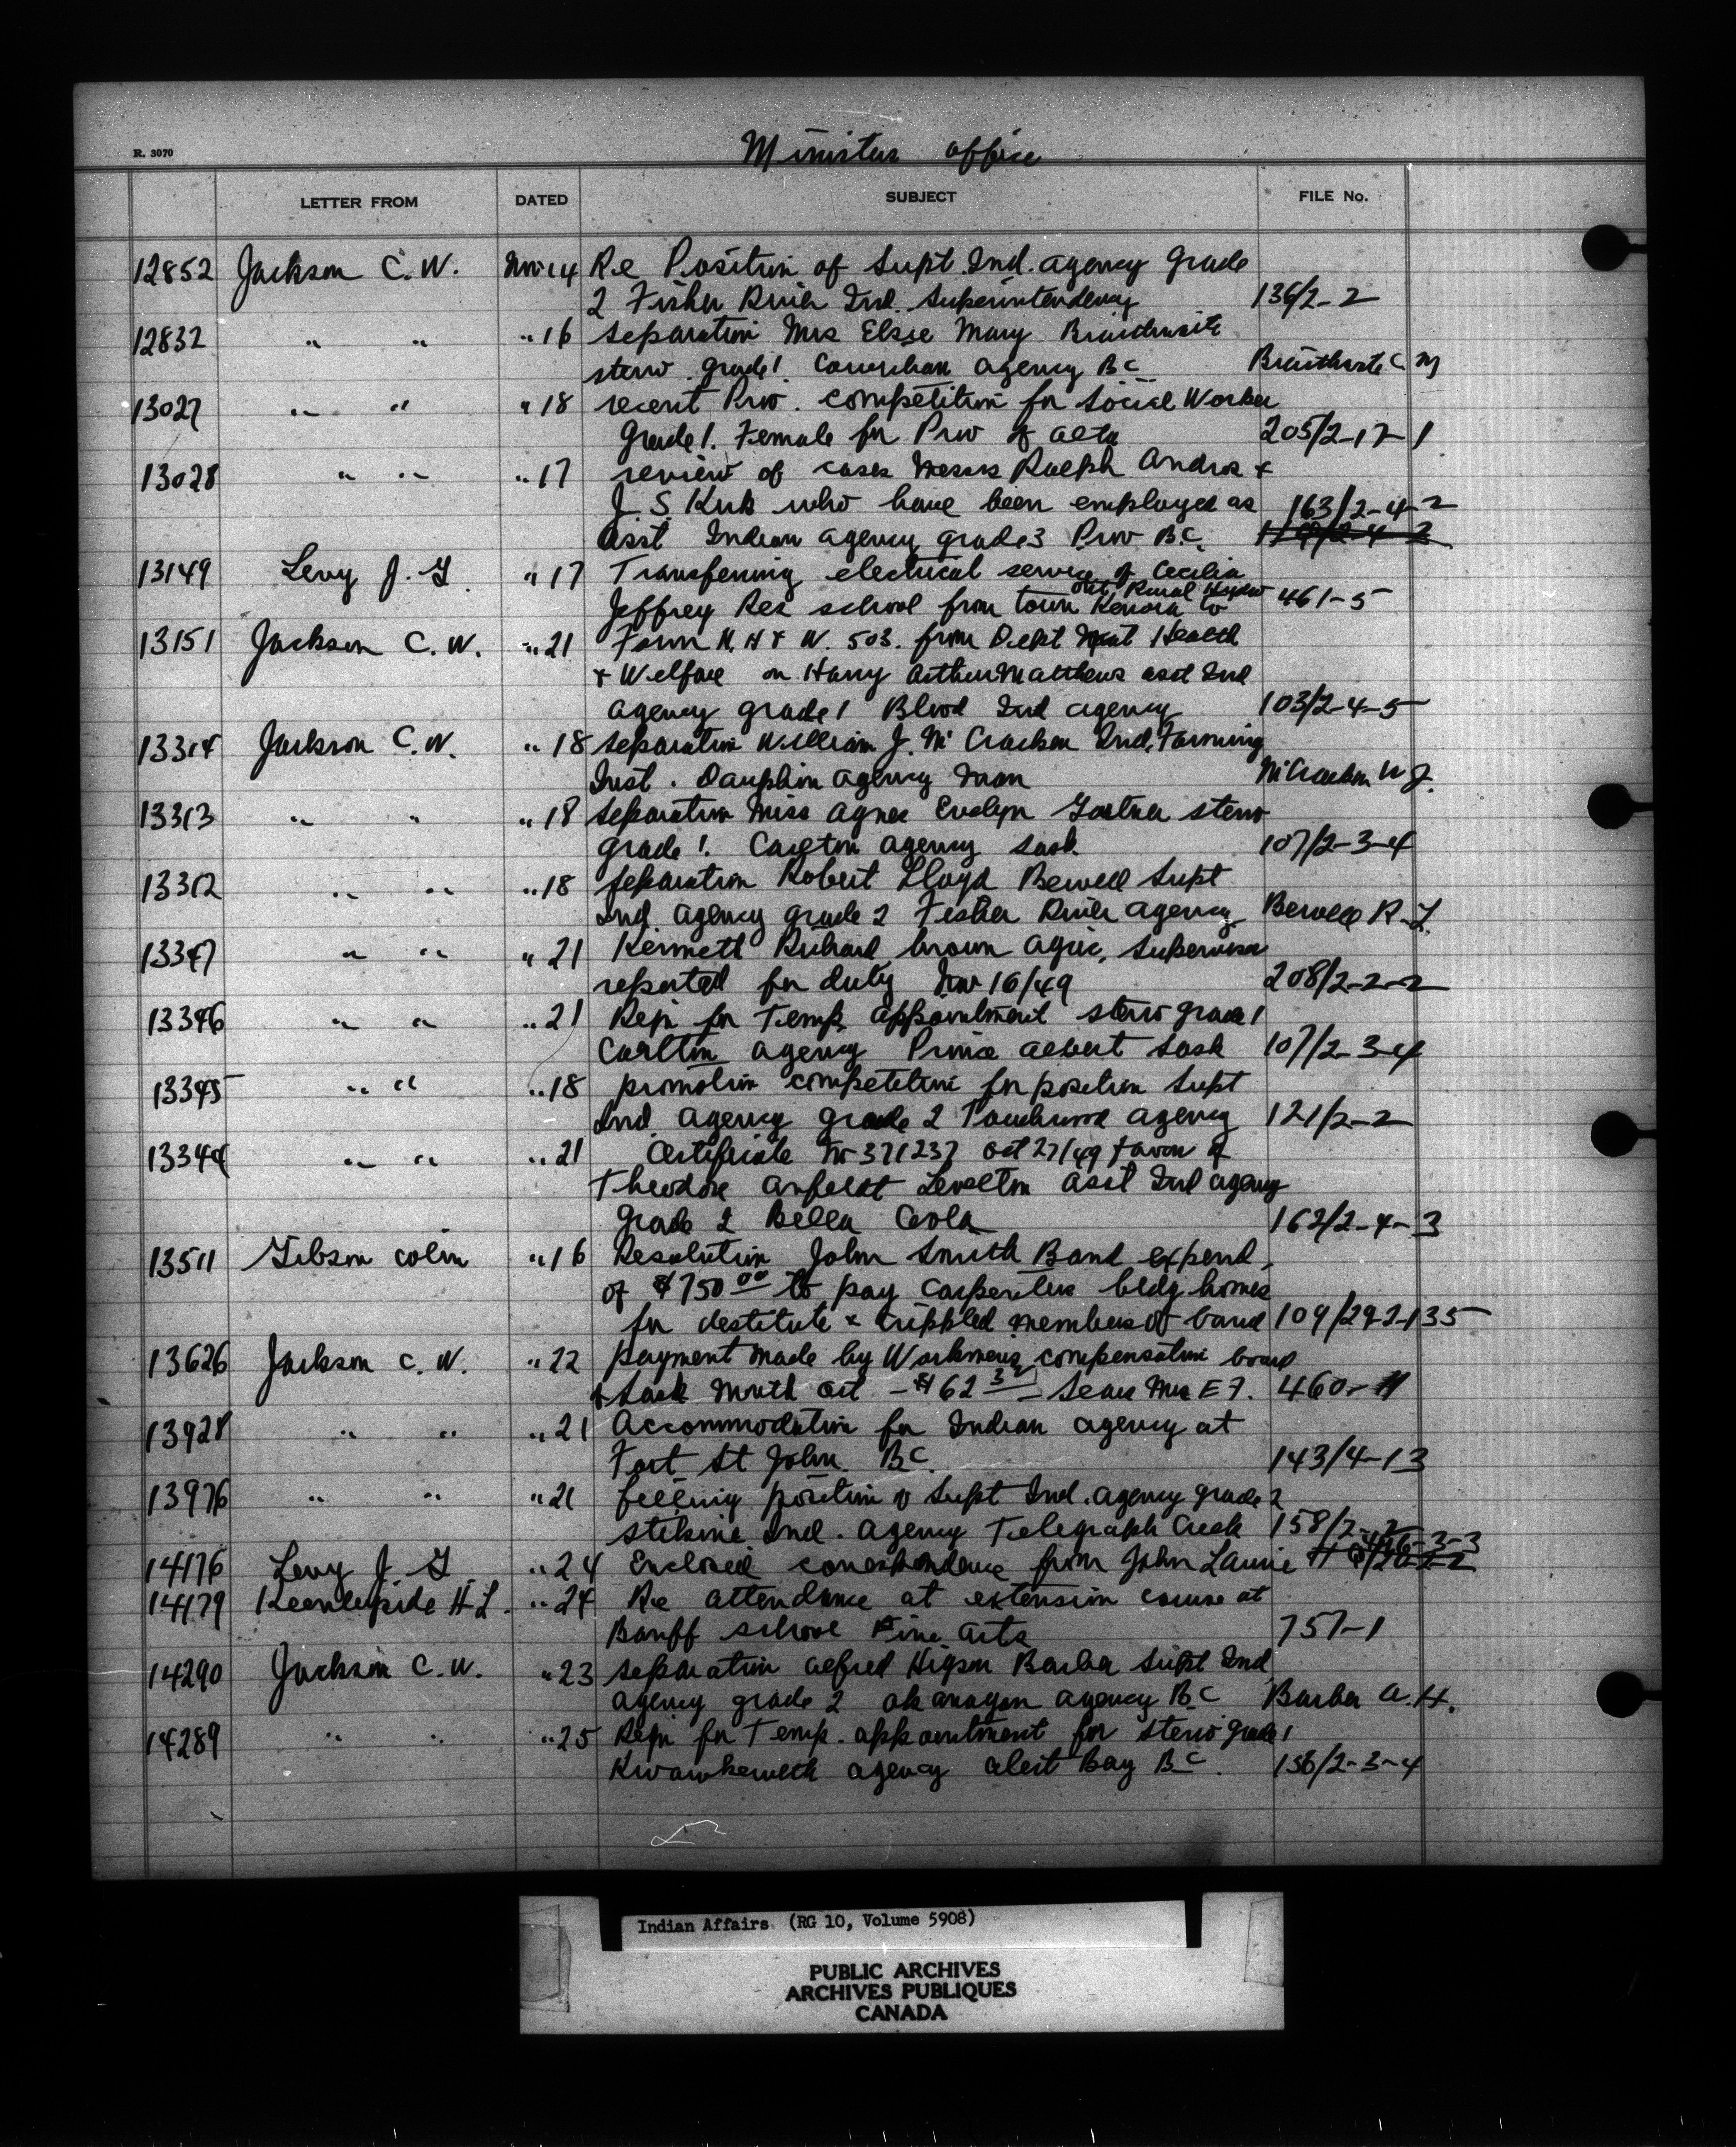 Ministers office
R. 3070
LETTER FROM DATED SUBJECT FILE No.
12852 Jackson C. W. Nov 14 Re Position of Supt. Ind. agency Grade
2 Fisher River Ind. Superintendency 136/2-2
12832 " " " 16 separation Mrs Elsie Mary Braithwaite
steno grade 1. Cowichan agency BC Braithwaite C. M
13027 " " " 18 recent Prov. competition for Social Worker
Grade 1. Female for Prov of Alta 205/2-17-1
13028 " " " 17 review of cases Messrs Ralph Andros +
J. S. Kirk who have been employed as 163/2-4-2
asst Indian agency grade 3 Prov B.C.
13149 Levy J. G " 17 Transferring electrical service of Cecilia
Rural Hydro
Jeffrey Res school from town Kenora to 461-5
13151 Jackson C. W. " 21 Form N. H + W. 503. from Dept Nat Health
+ Welfare on Harry Arthur Matthews asst Ind
agency grade 1 Blood Ind agency 103/2-4-5
13314 Jackson C. W. " 18 separation William J. McCracken Ind. Farming
Inst. Dauphin agency Man McCracken W J.
13313 " " " 18 separation Miss Agnes Evelyn steno
grade 1. Carlton agency Sask. 107/2-3-4
13312 " " " 18 separation Robert Lloyd Bewell Supt
Ind. agency grade 2 Fisher River agency Bewell R. L.
13347 " " " 21 Kenneth Richard brown agric. supervisor
reported for duty Nov 16/49 208/2-2-2
13346 " " " 21 Reqn for Temp. appointment steno grade 1
Carlton agency Prince Albert Sask 107/2-3-4
13345 " " " 18 promotion competition for position Supt
Ind. agency grade 2 Touchwood agency 121/2-2
13344 " " " 21 Certificate No 371237 Oct 27/49 favor of
Theodore Levelton asst Ind agency
Grade 2 Bella Coola 162/2-4-3
13511 Gibson Colin " 16 Resolution John Smith Band expend.
of $750 00 to pay carpenters bldg homes
for destitute + crippled members of band 109/29-2-135
13626 Jackson C. W. " 22 payment made by Workmen's compensation board
Sask month Oct - $62 Sears Mrs E F. 460-11
13928 " " " 21 Accommodation for Indian agency at
Fort St John BC. 143/4-13
13976 " " " 21 filling position of Supt Ind. agency grade 2
stikine Ind. agency Telegraph Creek 158/2-2
14176 Levy J. G " 24 Enclosed correspondence from John Laurie
14179 Keenleyside H L. " 24 Re attendance at extension course at
Banff school Fine Arts 757-1
14290 Jackson C. W. " 23 separation Alfred Higson Barber Supt Ind
agency grade 2 okanagan agency BC Barber A. H.
14289 " " " 25 Reqn for Temp. appointment for steno Grade 1
Kwawkewlth agency Alert Bay BC. 156/2-3-4
Indian Affairs (RG 10, Volume 5908)
PUBLIC ARCHIVES
ARCHIVES PUBLIQUES
CANADA